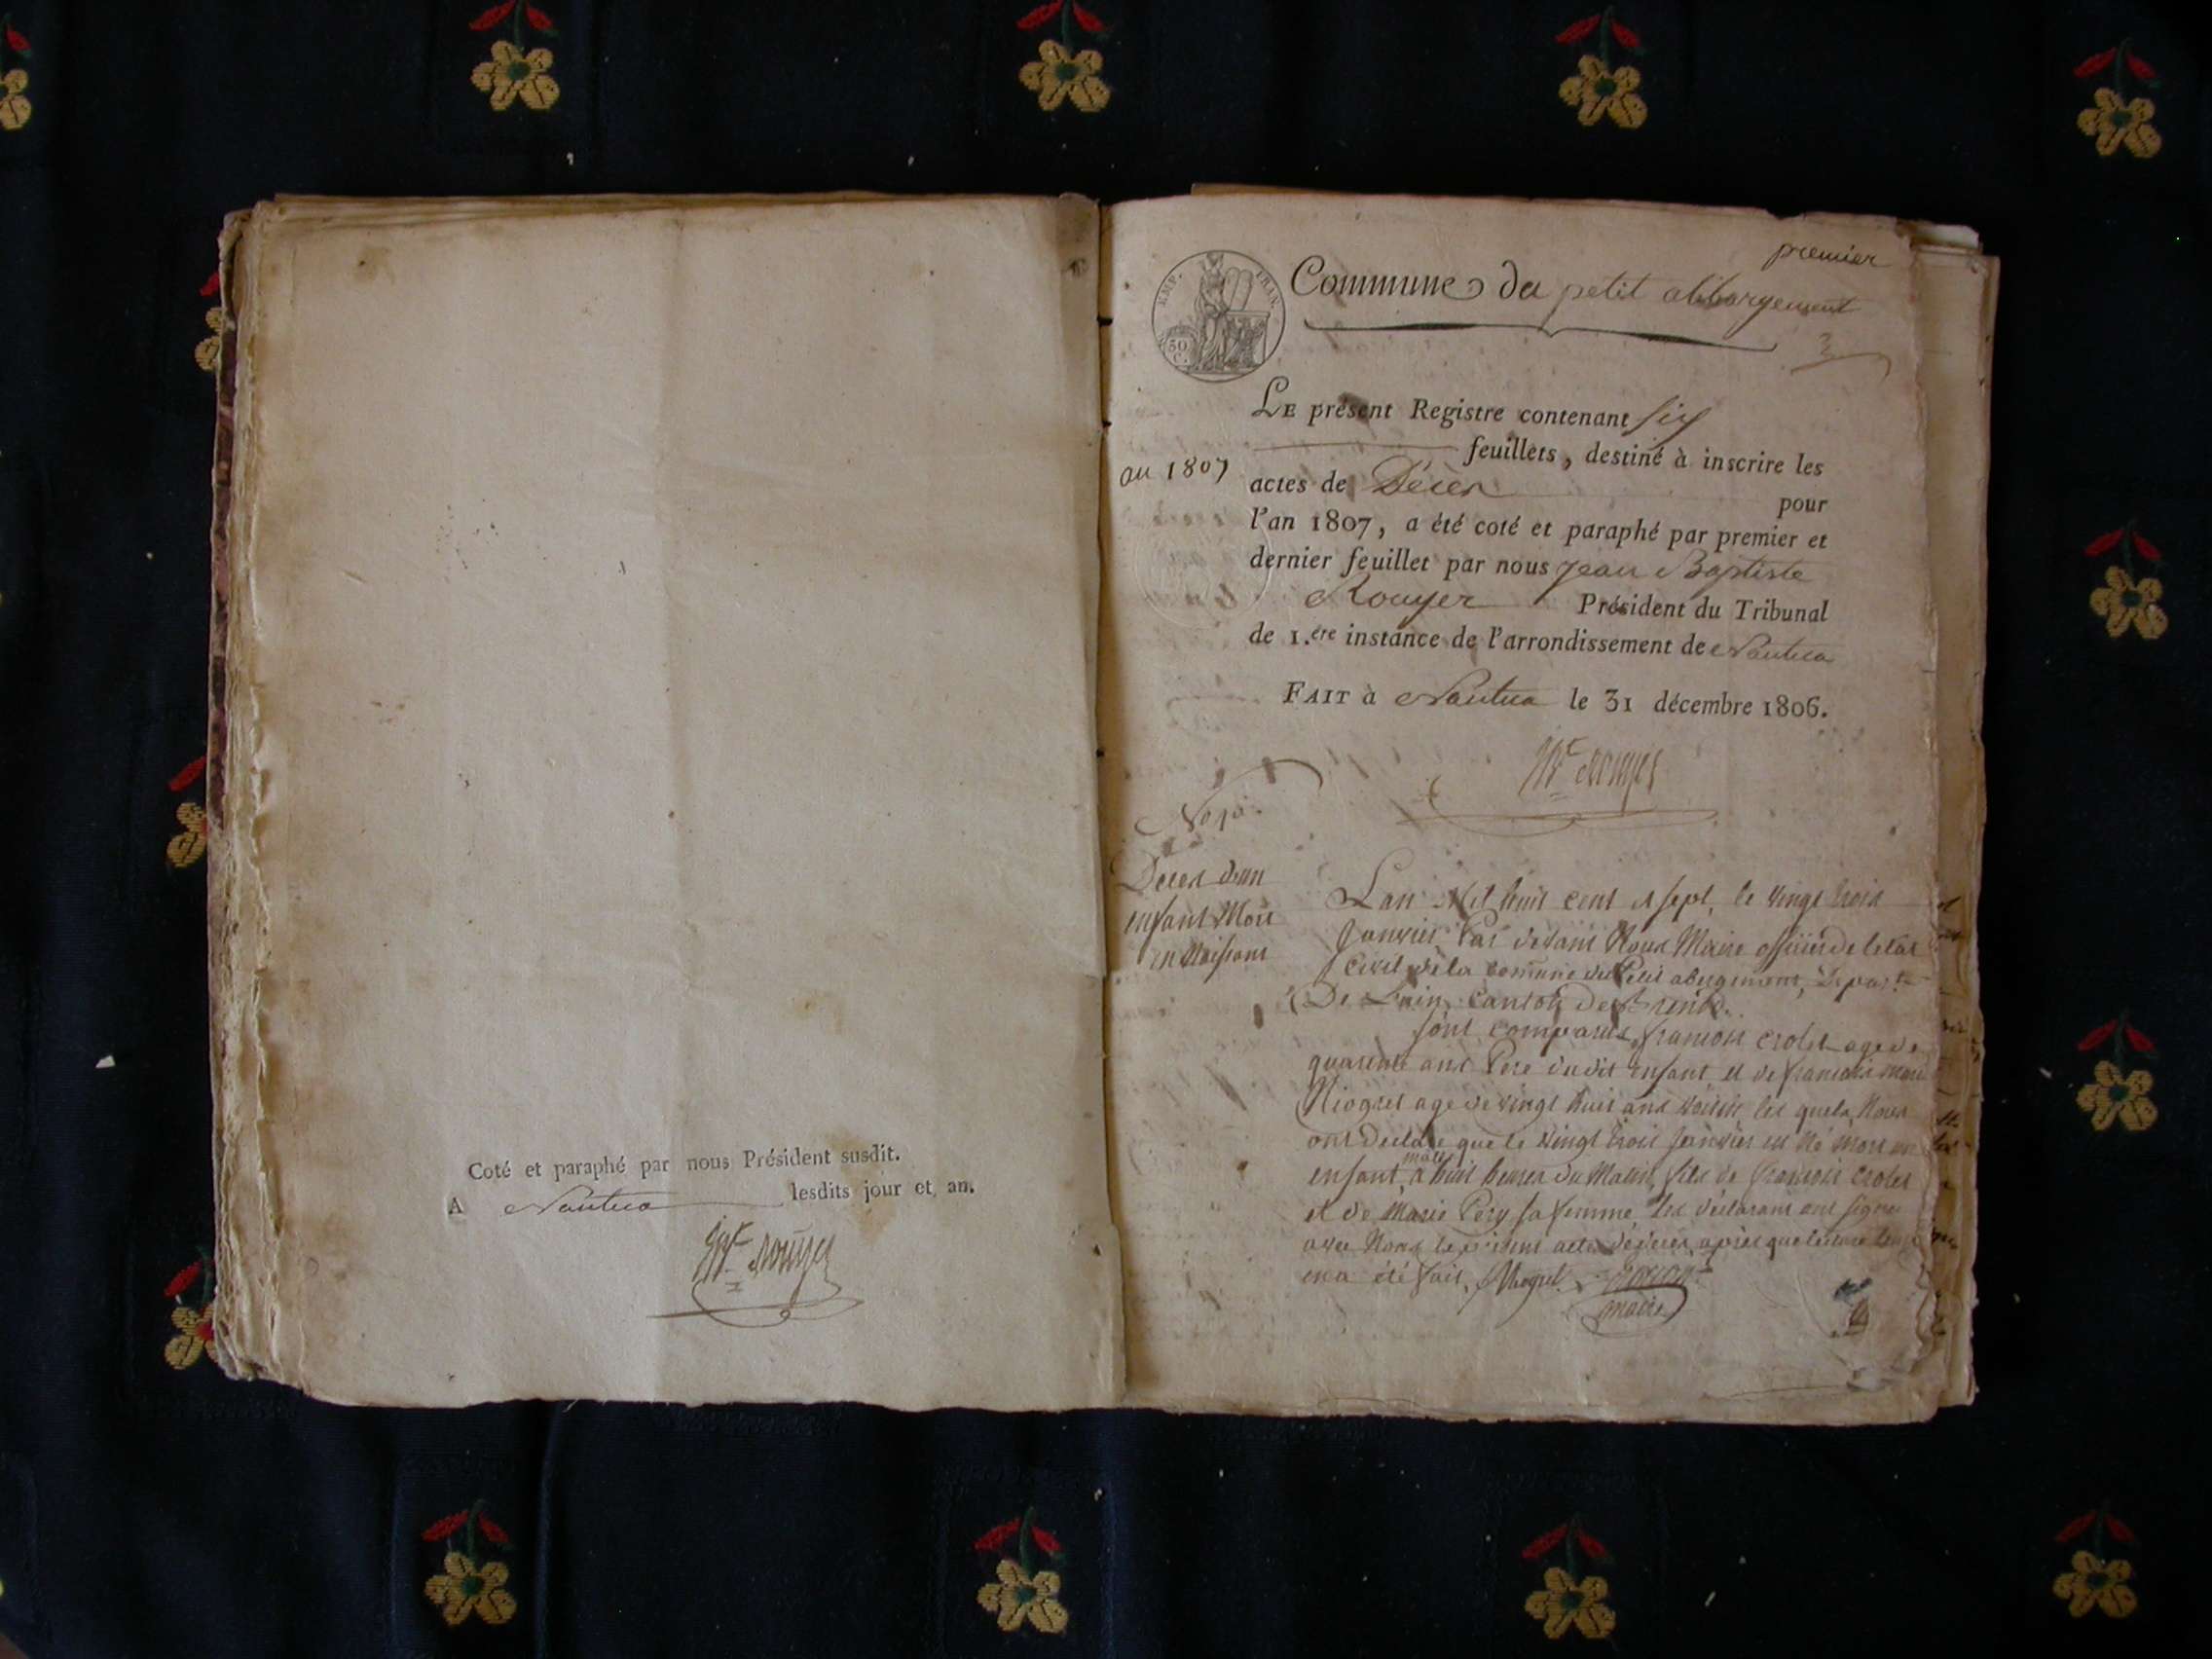 Coté et paraphé par nous Président susdit.
A Nantua lesdits jour et an.
premier
EMP. FRAN.
50 C.
Commune du petit abbergement
LE présent Registre contenant six
feuillets, destiné à inscrire les
an 1807
actes de Décès pour
l'an 1807, a été coté et paraphé par premier et
dernier feuillet par nous Jean Baptiste
Rouyer Président du Tribunal
de 1.ere instance de l'arrondissement de Nantua
FAIT à Nantua le 31 décembre 1806.
Décès d'un
enfant Mort
en Naissant
L'an Mil huit cent et sept, le vingt trois
Janvier Par devant Nous Maire officier de letat
Civil de la Commune du Petit abergement, Depart.
De Lain, Canton de Brenod.
sont comparus francois crolet age de
quarante ans Pere dudit enfant et de francois marie
Niogret age de vingt huit ans voisin les quels Nous
ont declare que le vingt trois Janvier est né mort un
enfant male a huit heures du Matin, fils de francois crolet
et de Marie Pery sa femme, les declarans ont signe
avec Nous le present acte de deces, après que lecture leur
en a été fait. Niogret
maire